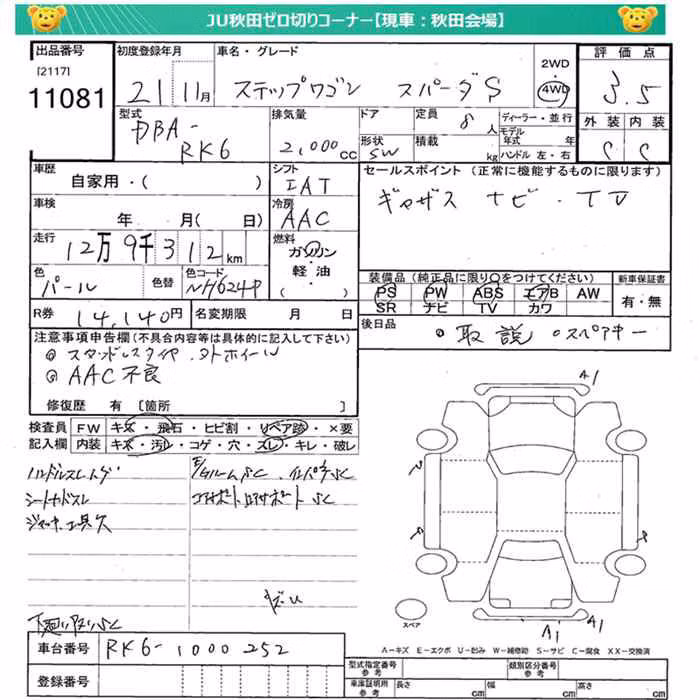 JU秋田ゼロ切りコーナー【現車：秋田会場】
出品番号 初度登録年月 車名・グレード 2WD 評価点
[2117] 11081
21 11月 ステップワゴン スパーダS 4WD 3.5
型式 排気量 ドア 定員 ディーラー・並行 外装 内装
DBA-RK6 2,000cc 8人 モデル年式 年 C C
形状 SW 積載 kg ハンドル 左・右
車歴 シフト セールスポイント（正常に機能するものに限ります）
自家用・( ) IAT
車検 冷房 ナビ・TV
年 月( 日) AAC
走行 燃料
12万9千312km ガソリン
軽油
( )
色 色替 色コード
パール NH624P
装備品（純正品に限り○をつけてください） 新車保証書
PS PW ABS エアB AW 有・無
SR ナビ TV カワ
R券 14,140円 名変期限 月 日
後日品 取説 スペアキー
注意事項申告欄（不具合内容等は具体的に記入して下さい）
スタッドレスタイヤ
AAC不良
修復歴 有 [箇所 ]
検査員記入欄 FW キズ・飛石・ヒビ割・リペア跡・×要
内装 キズ・汚レ・コゲ・穴・スレ・キレ・破レ
ハンドルスレ
A1
A1
A1
スペア
A－キズ E－エクボ U－凹み W－補修跡 S－サビ C－腐食 XX－交換済
車台番号 RK6-1000252
登録番号
型式指定番号 参考 類別区分番号 参考
車庫証明用 参考 長さ cm 幅 cm 高さ cm